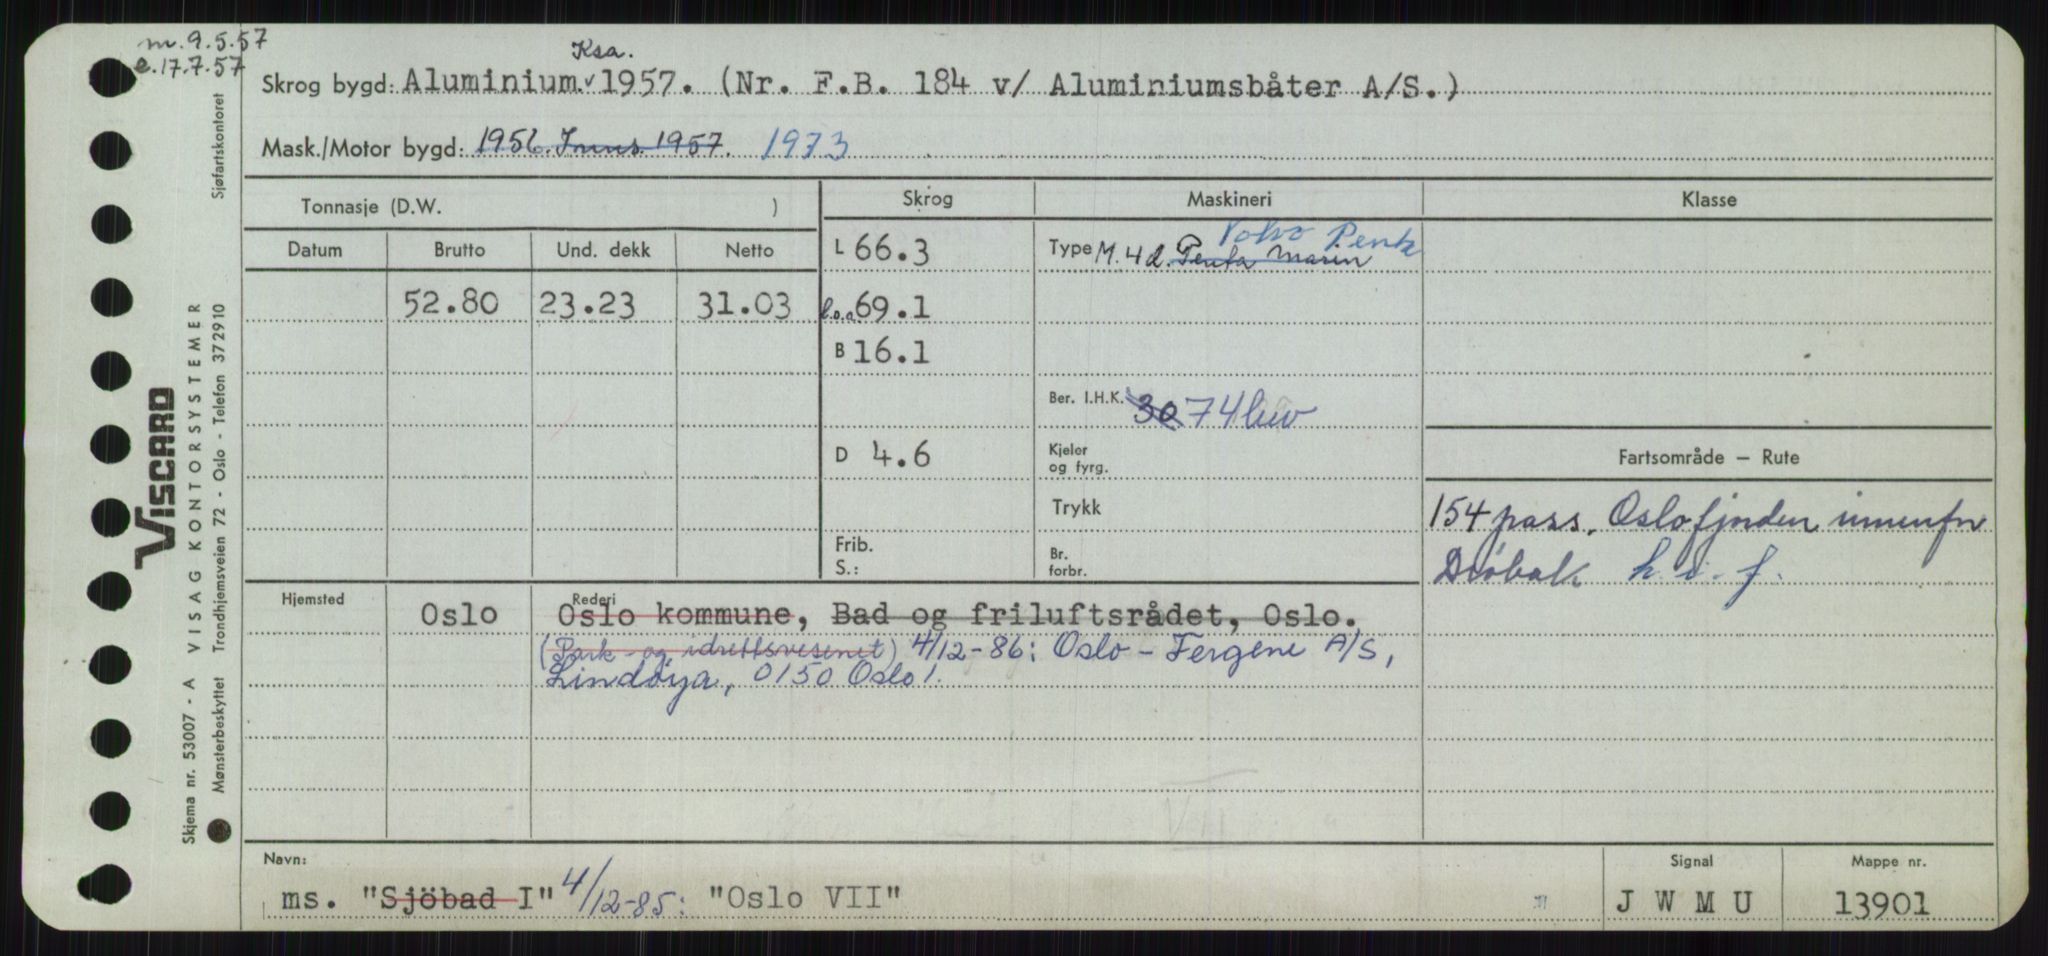 m. 9.5.57
e. 17.7.57
Ksa.
Skrog bygd: Aluminium. v 1957. (Nr. F.B. 184 v/ Aluminiumsbåter A/S.)
Mask./Motor bygd: 1956. Inns. 1957. 1973
Tonnasje (D.W. )
Skrog
Maskineri
Klasse
Datum Brutto Und. dekk Netto
L 66.3
Volvo Penta
Type M. 4 d. Penta Marin
52.80 23.23 31.03
l.o.a. 69.1
B 16.1
Ber. I.H.K. 30 74
D 4.6
Kjeler
og fyrg.
Fartsområde – Rute
Trykk
154 pass. Oslofjorden innenfor
Drøbak h. i. f.
Frib.
S.:
Br.
forbr.
Hjemsted
Oslo
Rederi
Oslo kommune, Bad og friluftsrådet, Oslo.
(Park- og idrettsvesenet) 4/12-86: Oslo-Fergene A/S,
Lindøya, 0150 Oslo 1.
Navn:
ms. "Sjöbad I" 4/12-85: "Oslo VII"
Signal
J W M U
Mappe nr.
13901
VISCARD
VISAG KONTORSYSTEMER
Skjema nr. 53007 - A
Sjøfartskontoret
Trondhjemsveien 72 - Oslo - Telefon 372910
Mønsterbeskyttet